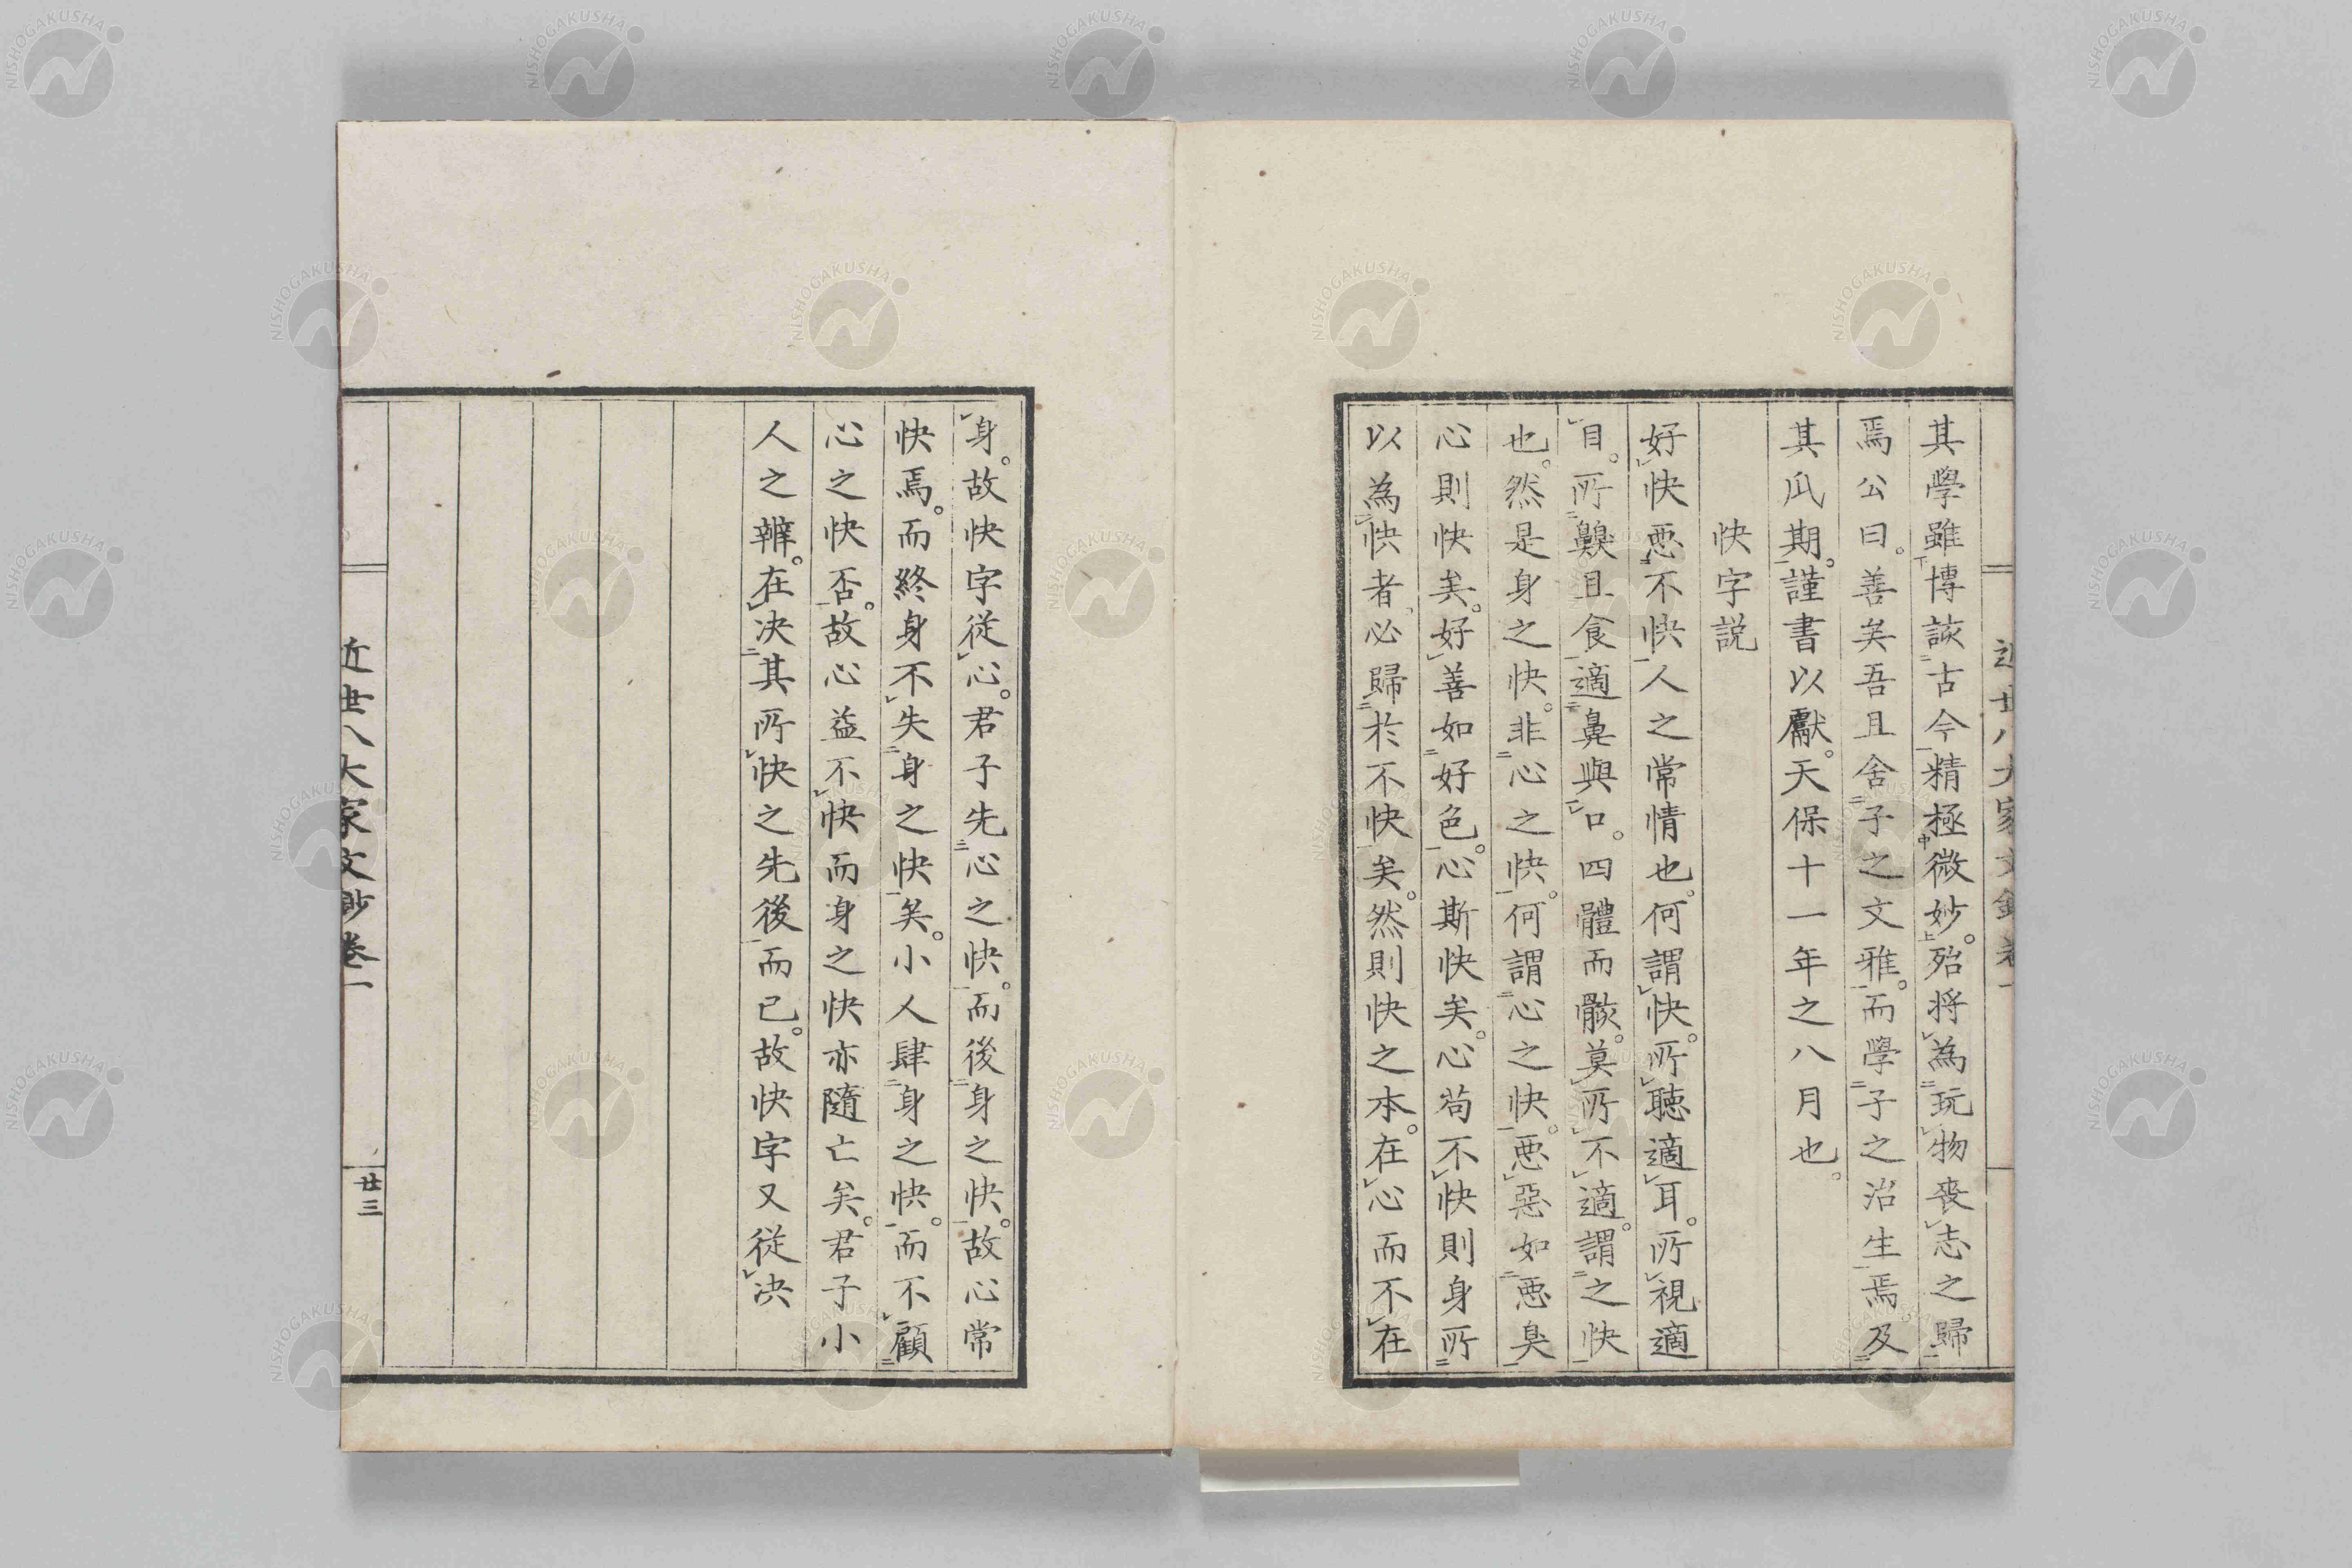 其學雖博談古今精極微妙。殆将為玩物喪志之歸
焉公曰。善矣吾且舍子之文雅。而學子之治生焉及
其瓜期。謹書以獻。天保十一年之八月也。
快字説
好快悪不快人之常情也。何謂快。所聴適耳。所視適
目。所齅且食適鼻與口。四體而骸。莫所不適。謂之快
也。然是身之快。非心之快。何謂心之快。悪惡如悪臭
心則快矣。好善如好色。心斯快矣。心苟不快則身所
以為快者必歸於不快矣。然則快之本。在心而不在
身。故快字從心。君子先心之快。而後身之快。故心常
快焉。而終身不失身之快矣。小人肆身之快。而不顧
心之快否。故心益不快而身之快亦隨亡矣。君子小
人之辨。在决其所快之先後而已。故快字又從决
近世八大家文鈔卷一
廿三
NISHOGAKUSHA